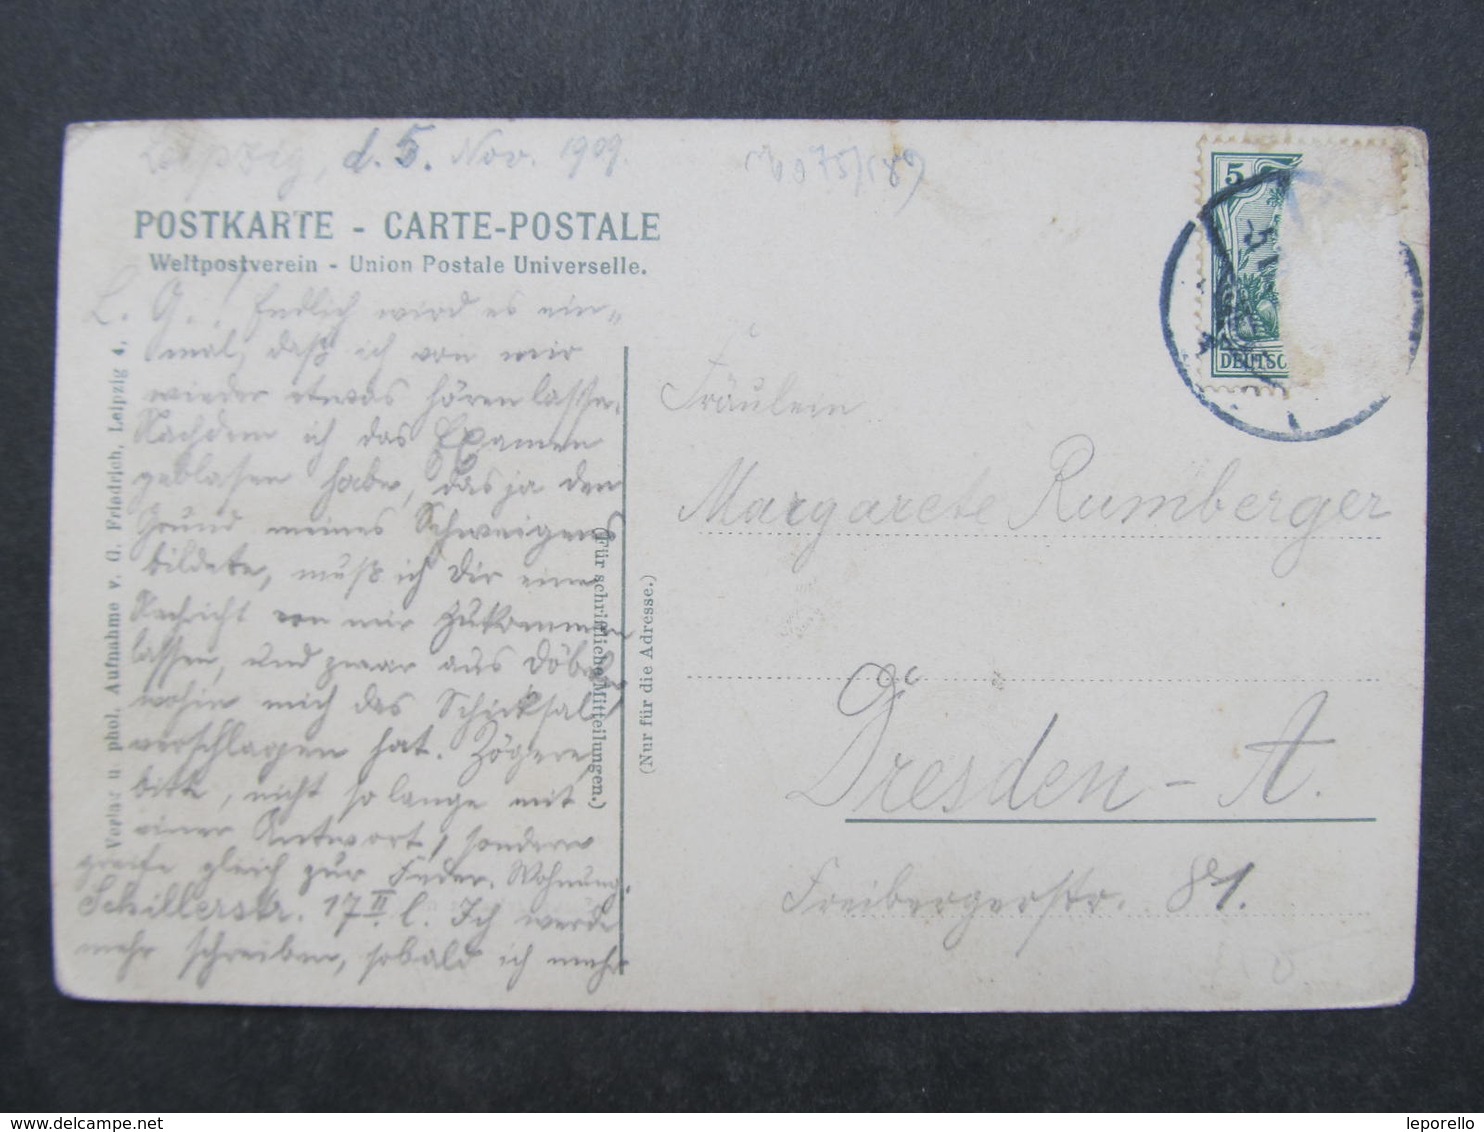 Leipzig, d. 5. Nov. 1909.
POSTKARTE - CARTE-POSTALE
Weltpostverein - Union Postale Universelle.
L. G.! Endlich wird es ein-
mal, daß ich von mir
wieder etwas hören lasse.
Nachdem ich das Examen
geblasen habe, das ja den
Grund meines Schweigens
bildete, muß ich Dir eine
Nachricht von mir zukommen
lassen, und zwar aus Döbeln
wohin mich das Schicksal
verschlagen hat. Zögere,
bitte, nicht so lange mit
einer Antwort, sondern
greife gleich zur Feder. Wohnung:
Schillerstr. 17 II l. Ich werde
mehr schreiben, sobald ich mehr
Verlag u. phot. Aufnahme v. G. Friedrich, Leipzig 4.
(Für schriftliche Mitteilungen.)
(Nur für die Adresse.)
5
DEUTSC
Fräulein
Margarete Rumberger
Dresden - A.
Freibergerstr. 81.
www.delcampe.net
leporello